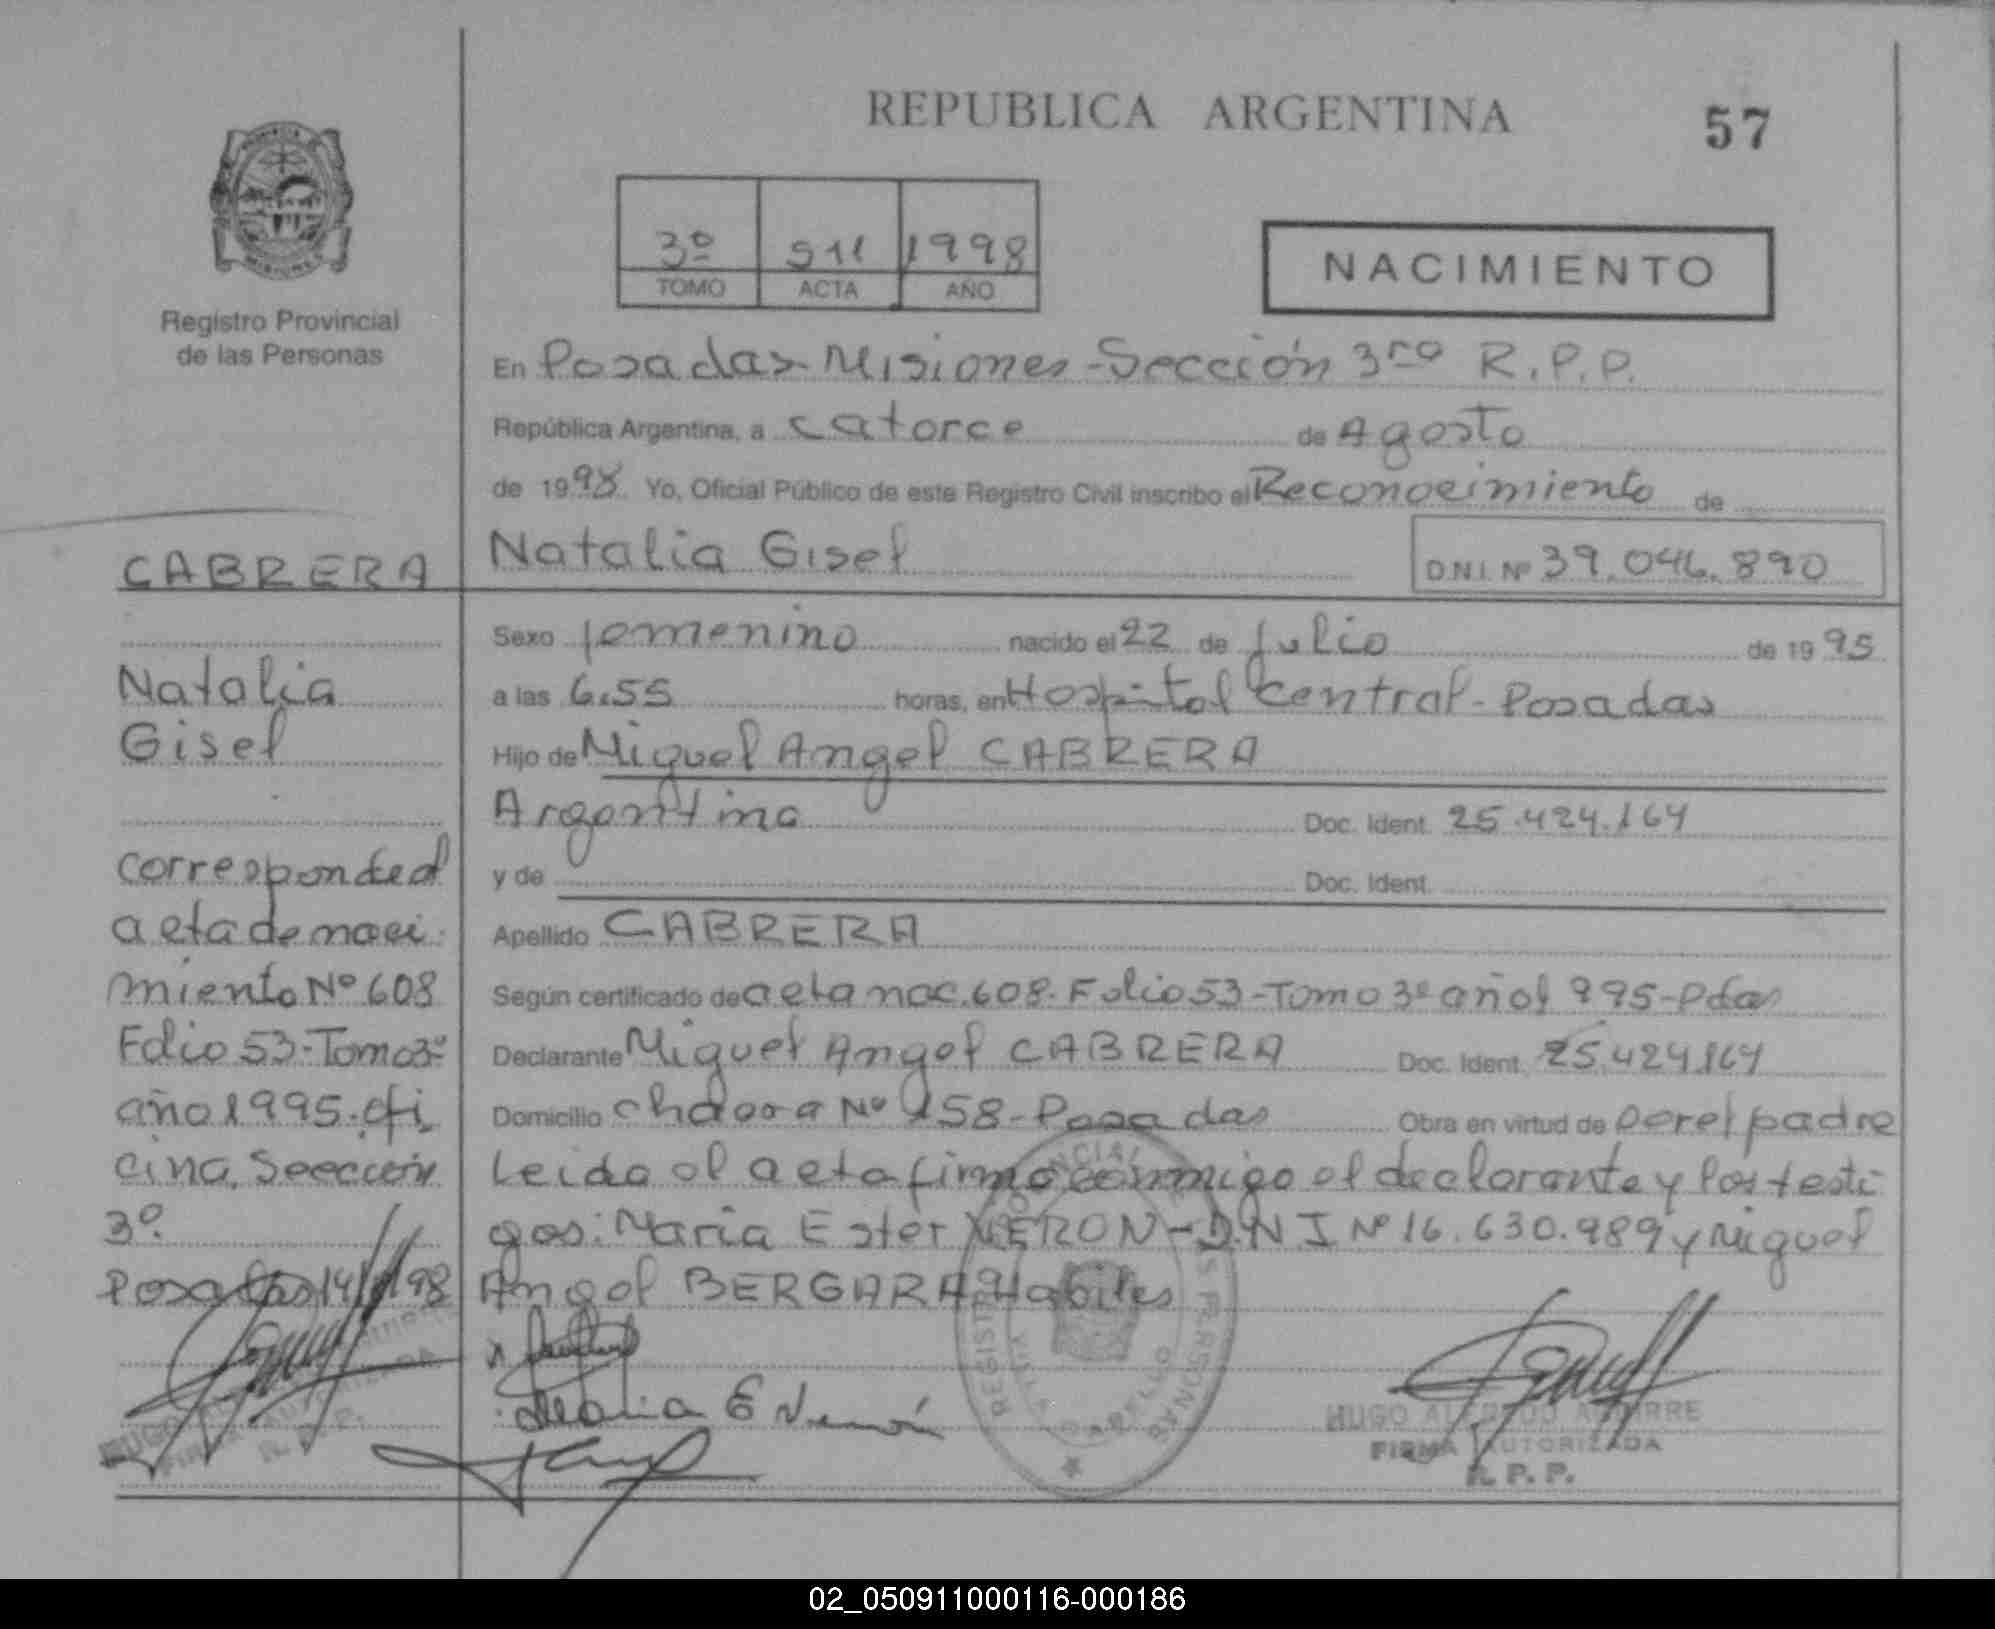 REPUBLICA ARGENTINA
57
3º 511 1998
TOMO ACTA AÑO
NACIMIENTO
MISIONES
Registro Provincial
de las Personas
En Posadas-Misiones-Sección 3ra R.P.P.
República Argentina, a catorce de Agosto
de 1998 Yo, Oficial Público de este Registro Civil inscribo el Reconocimiento de
Natalia Gisel D.N.I. Nº 39.046.890
Sexo femenino nacido el 22 de Julio de 1995
a las 6.55 horas, en Hospital Central-Posadas
Hijo de Miguel Angel CABRERA
Argentina Doc. Ident. 25.424.164
y de Doc. Ident.
Apellido CABRERA
Según certificado de acta nac. 608. Folio 53-Tomo 3º año 1995-Pdas
Declarante Miguel Angel CABRERA Doc. Ident. 25.424.164
Domicilio chacra Nº 158-Posadas Obra en virtud de ser el padre
Leida el acta firma conmigo el declarante y los testi
gos: Maria Ester VERON-D.N.I Nº 16.630.989 y Miguel
Angel BERGARA Habiles
Maria E Verón
HUGO ALFREDO AGUIRRE
FIRMA AUTORIZADA
R. P. P.
CABRERA
Natalia
Gisel
corresponde al
acta de naci
miento Nº 608
Folio 53-Tomo 3º
año 1995. ofi
cina. Sección
3º.
Posadas 14/8/98
02_050911000116-000186